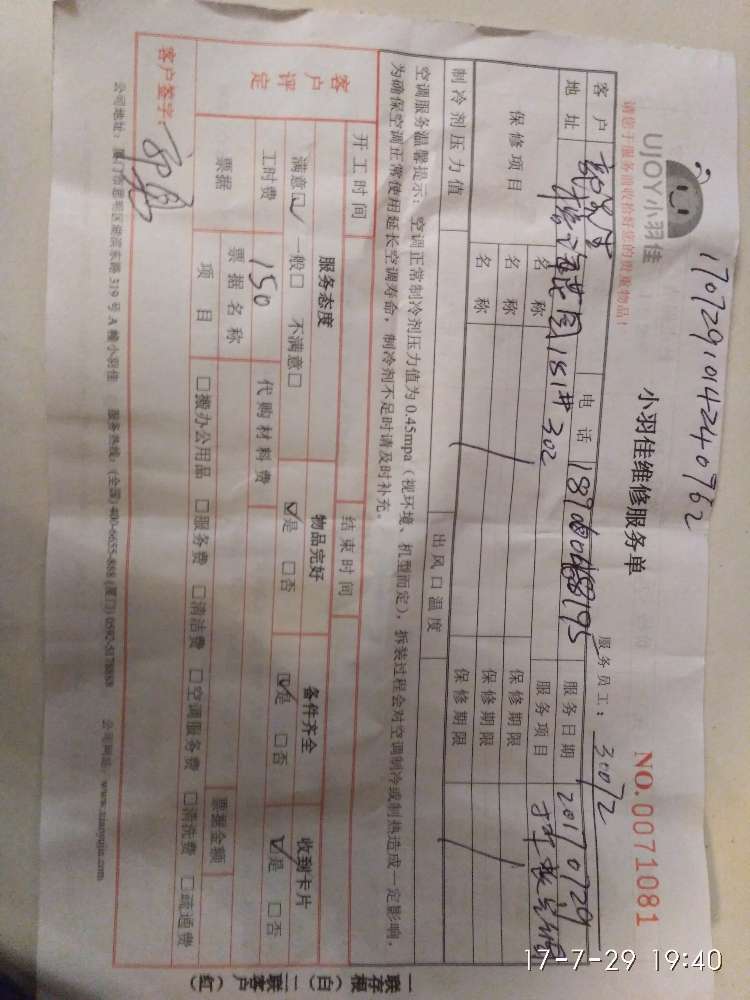 1707291014240762
UJOY小羽佳
小羽佳维修服务单
NO.0071081
请您于服务前收拾好您的贵重物品!
服务员工: 31072
客户 电话 服务日期 20170729
地址 181# 302 服务项目
保修项目 名称 保修期限
名称 保修期限
名称 保修期限
制冷剂压力值 出风口温度
空调服务温馨提示: 空调正常制冷剂压力值为0.45mpa(视环境、机型而定), 拆装过程会对空调制冷或制热造成一定影响,
为确保空调正常使用延长空调寿命, 制冷剂不足时请及时补充。
开工时间 结束时间
客户评定 服务态度 物品完好 备件齐全 收到卡片
满意☑ 一般□ 不满意□ ☑是 □否 ☑是 □否 ☑是 □否
工时费 150 代购材料费
票据 票据名称 票据金额
项目 □搬办公用品 □服务费 □清洁费 □空调服务费 □清洗费 □疏通费
客户签字:
公司地址: 厦门市思明区 东路319号A幢小羽佳 服务热线: (全国) 400-6655-888 (厦门) 0592-5178888 公司网址: www.xiaoyujia.com
一联存根(白)二联客户(红)
17-7-29 19:40